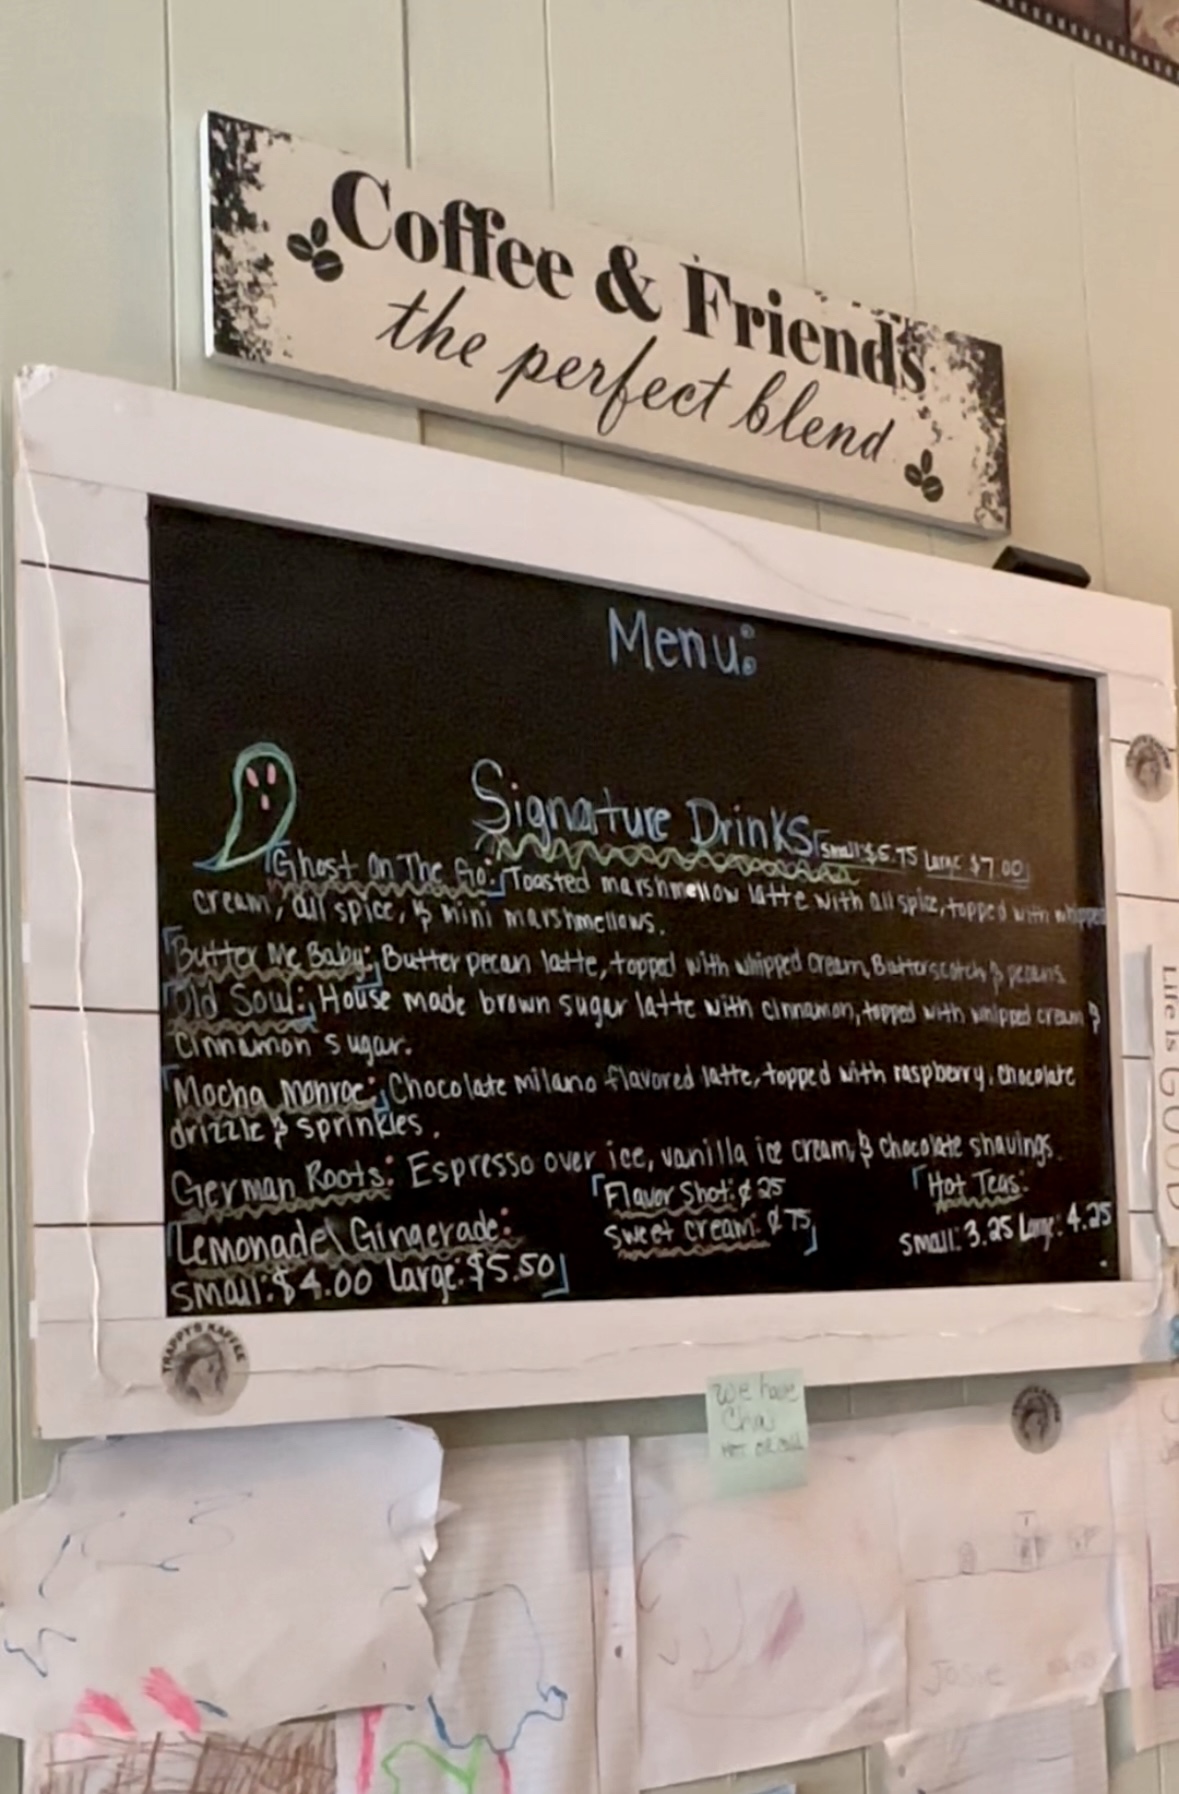 Coffee & Friends
the perfect blend
Menu:
Signature Drinks Small $5.75 Large $7.00
Ghost On The Go: Toasted marshmellow latte with all spice, topped with whipped
cream, all spice, & mini marshmellows.
Butter Me Baby: Butter pecan latte, topped with whipped cream, Butterscotch & pecans
Old Soul: House made brown sugar latte with cinnamon, topped with whipped cream &
Cinnamon sugar.
Mocha Monroe: Chocolate milano flavored latte, topped with raspberry, chocolate
drizzle & sprinkles.
German Roots: Espresso over ice, vanilla ice cream, & chocolate shavings.
Flavor Shot: ¢ 25
Sweet cream: ¢ 75
Hot Teas:
small: 3.25 Large: 4.25
Lemonade\ Gingerade:
small: $4.00 Large: $5.50
TRAPPY'S KAFFEE
Life is GOOD
we have
Chai
HOT OR COLD
Josie